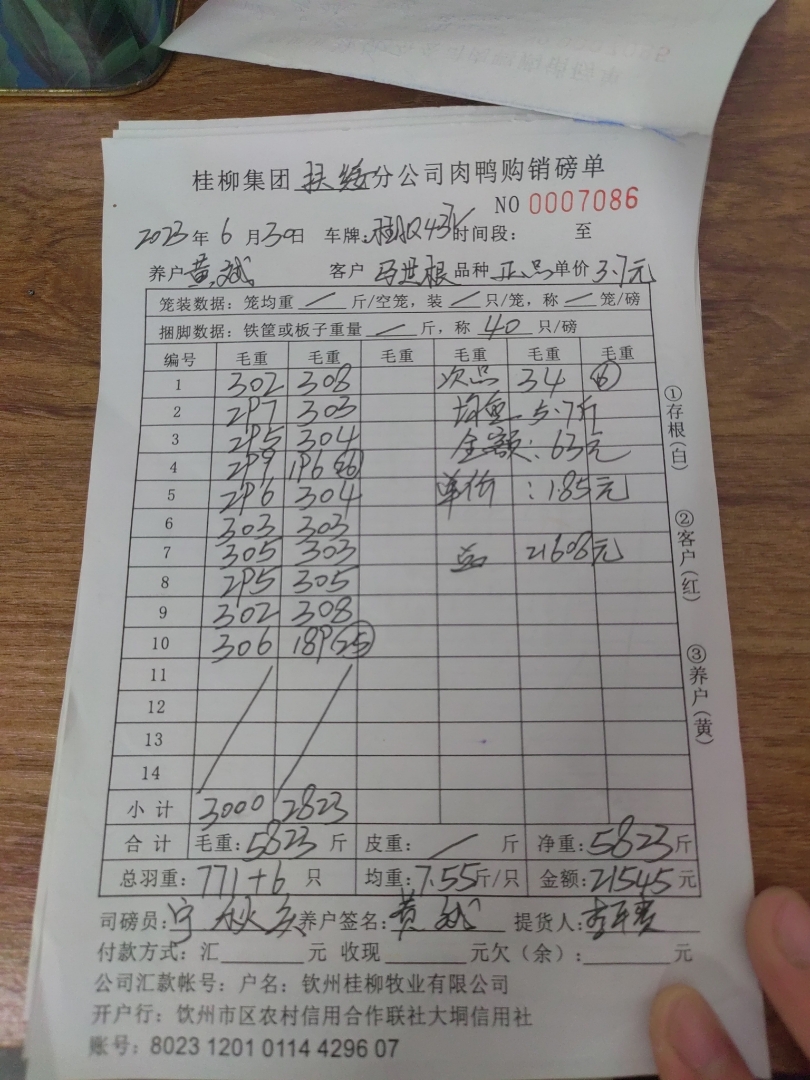 桂柳集团 扶绥 分公司肉鸭购销磅单
NO 0007086
2023 年 6 月 30日 车牌: 时间段: 至
养户 黄斌 客户 马世根 品种 正品 单价 3.7元
笼装数据: 笼均重 / 斤/空笼, 装 / 只/笼, 称 / 笼/磅
捆脚数据: 铁筐或板子重量 / 斤, 称 40 只/磅
编号 毛重 毛重 毛重 毛重 毛重 毛重
1 302 308 次品 34 ⑥
2 297 303 均重 5.7斤
3 295 304 金额: 63元
4 299 196 26
5 296 304 单价 : 1.85元
6 303 303
7 305 303 总 21608元
8 295 305
9 302 308
10 306 189 25
11
12
13
14
小计 3000 2823
合计 毛重: 5823 斤 皮重: / 斤 净重: 5823 斤
总羽重: 771+6 只 均重: 7.55斤/只 金额: 21545 元
司磅员: 养户签名: 黄斌 提货人:
付款方式: 汇 元 收现 元欠(余): 元
公司汇款帐号: 户名: 钦州桂柳牧业有限公司
开户行: 钦州市区农村信用合作联社大垌信用社
账号: 8023 1201 0114 4296 07
①存根(白)
②客户(红)
③养户(黄)